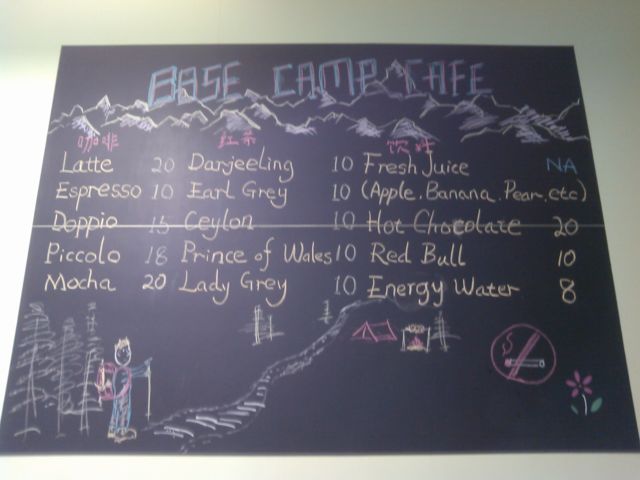 BASE CAMP CAFE
咖啡 红茶 饮料
Latte 20 Darjeeling 10 Fresh Juice NA
Espresso 10 Earl Grey 10 (Apple, Banana, Pear, etc)
Doppio 15 Ceylon 10 Hot Chocolate 20
Piccolo 18 Prince of Wales 10 Red Bull 10
Mocha 20 Lady Grey 10 Energy Water 8